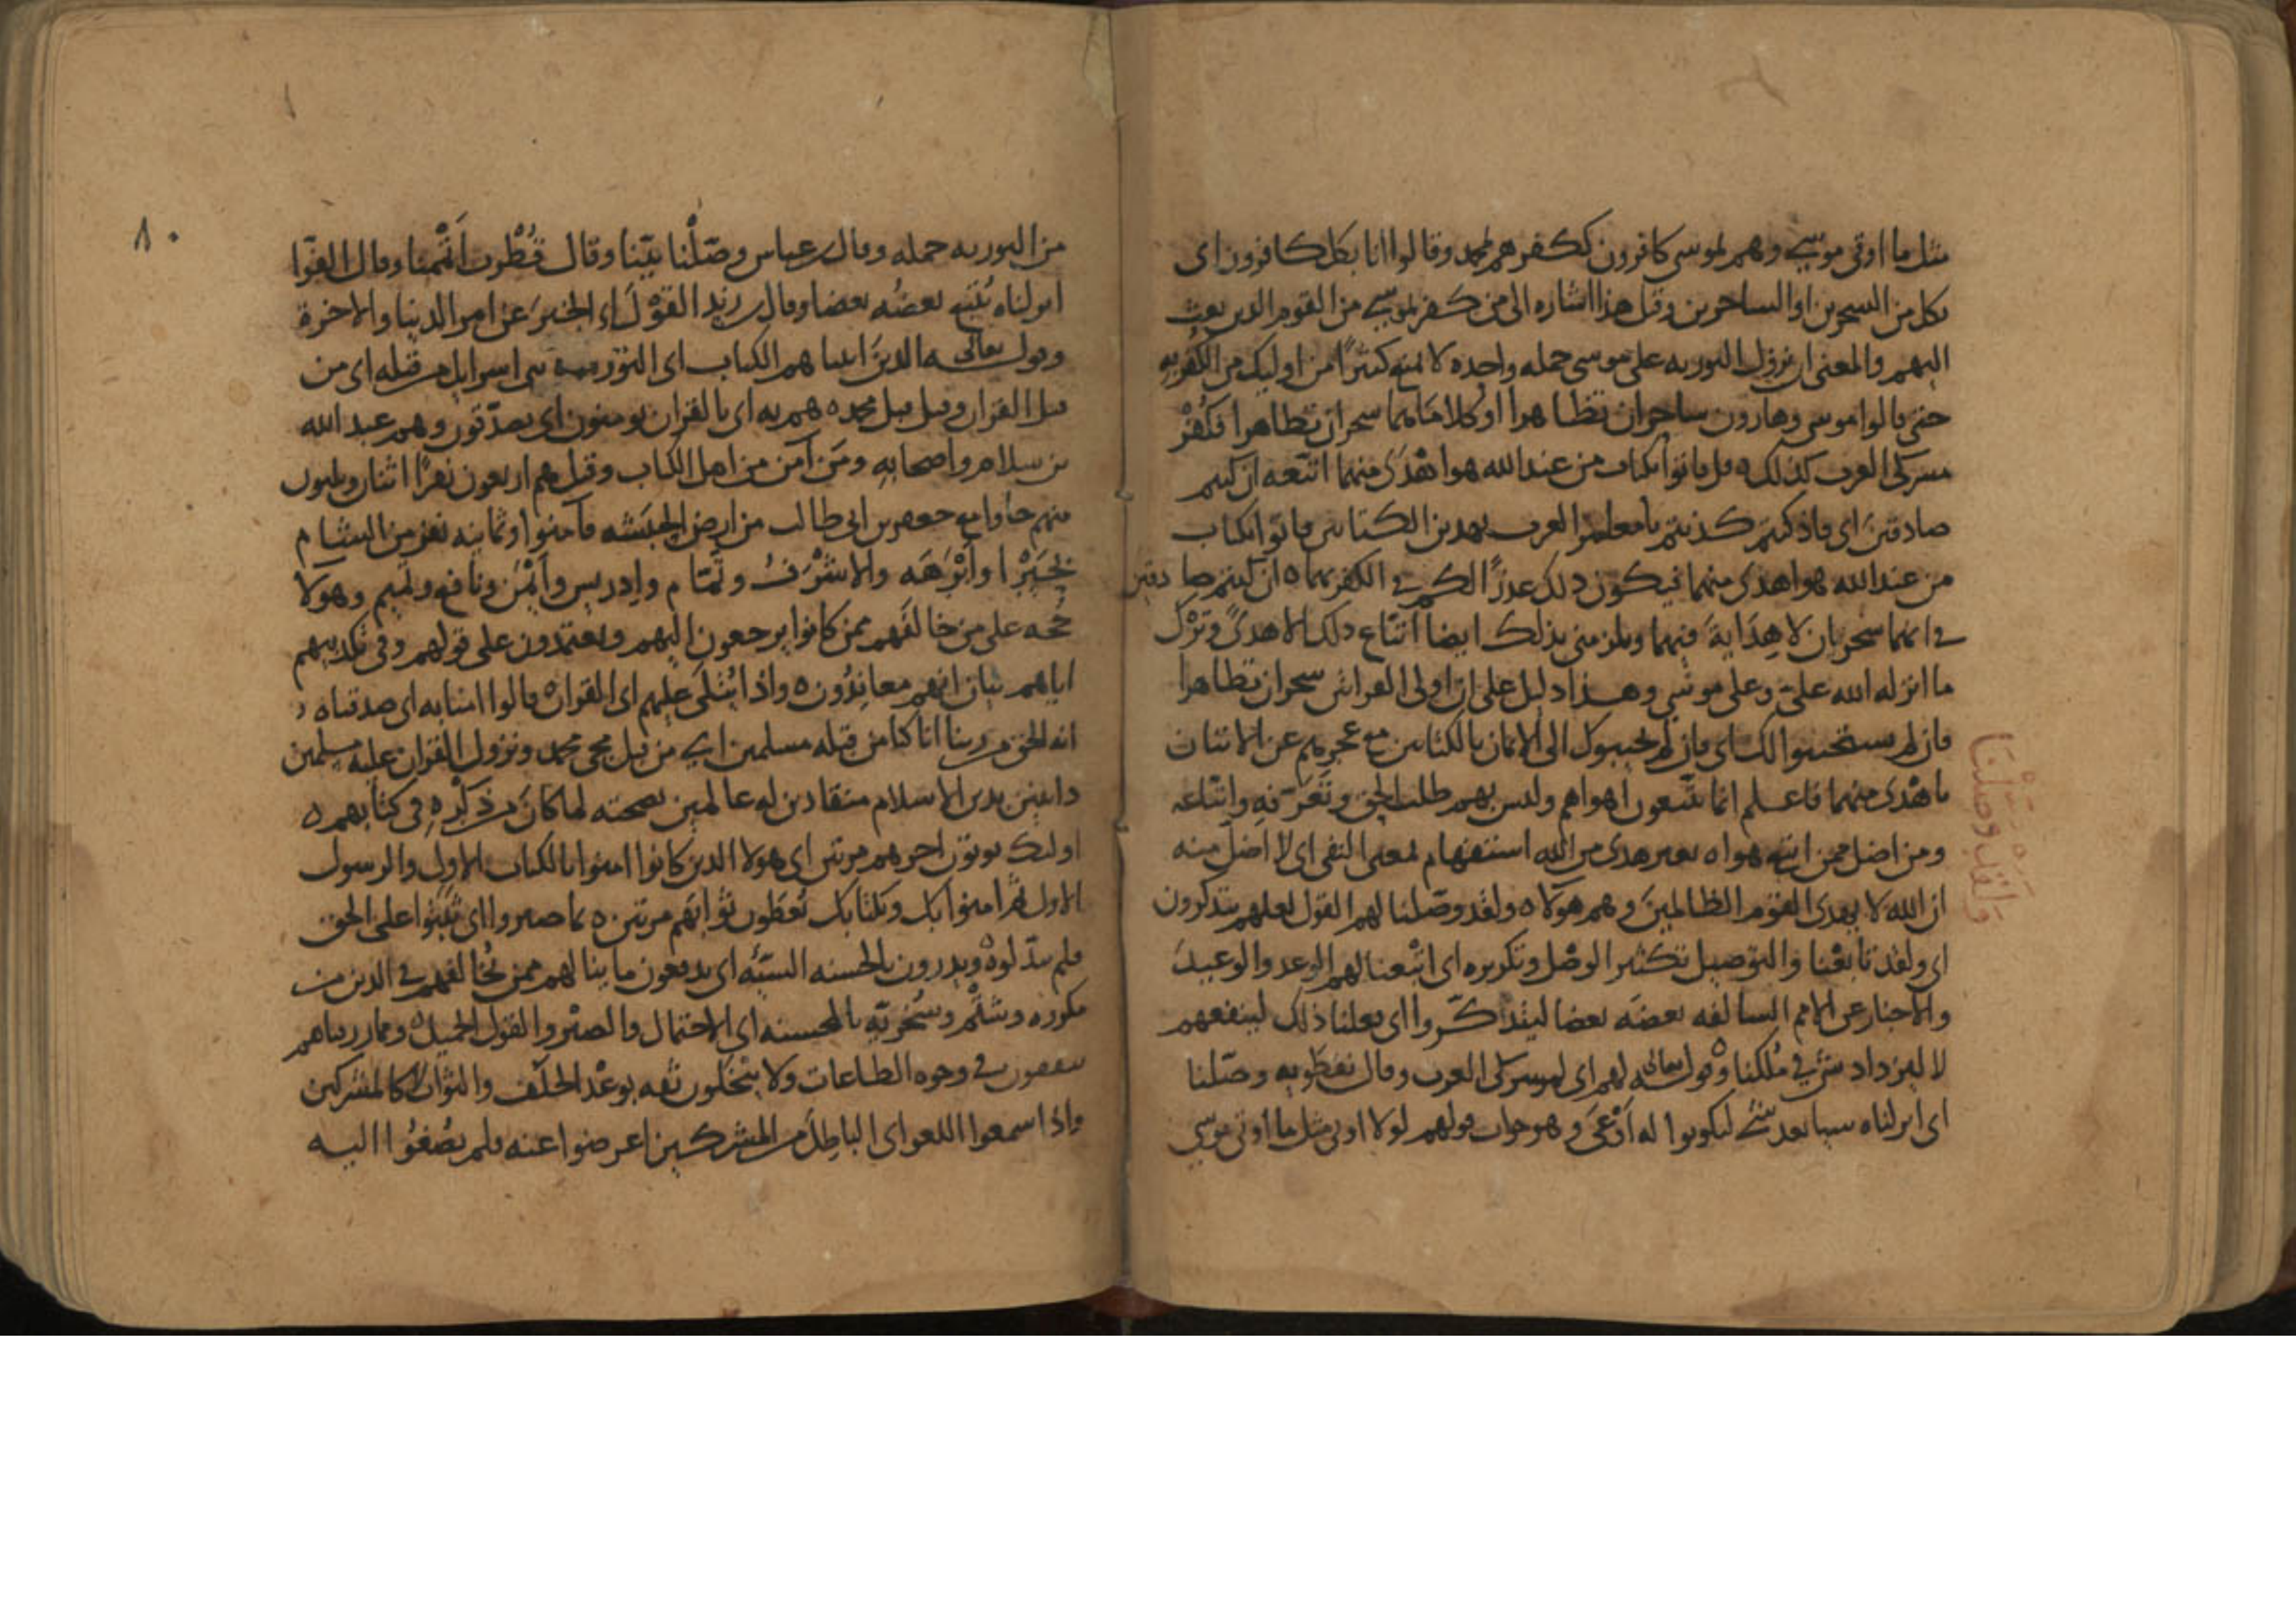 مثل ما اوتى موسى وهم لموسى كافرون ككفرهم لمحمد وقالوا انا بكل كافرون اى
بكل من السحرين او الساحرين وقيل هذا اشاره الى من كفر بموسى من القوم الذين بعث
اليهم والمعنى ان نزول التوريه على موسى جمله واحده لا تمنع كثيرًا من اوليك من الكفر به
حتى قالوا موسى وهارون ساحران تظاهرا او كلامهما سحران تظاهرا فكفر
مشركى العرب كذلك ه قل فاتوا بكتاب من عند الله هو اهدى منهما اتبعه ان كنتم
صادقين اى فاذ كنتم كذبتم يا معشر العرب بهذين الكتابين فاتوا بكتاب
من عند الله هو اهدى منهما فيكون ذلك عذرًا لكم في الكفر بهما ه ان كنتم صادقين
في انهما سحران لا هداية فيهما ويلزمنى بذلك ايضا اتباع ذلك الاهدى وترك
ما انزله الله علىّ وعلى موسى وهذا دليل على ان اولى القراتين سحران تظاهرا
فان لم يستجيبوا لك اى فان لم يجيبوك الى الاتيان بالكتابين مع عجزهم عن الاتيان
باهدى منهما فاعلم انما يتبعون اهواهم وليس بهم طلب الحق وتعرّفه واتباعه
ومن اضل ممن اتبع هواه بغير هدى من الله استفهام لمعنى النفى اى لا اضل منه
ان الله لا يهدى القوم الظالمين وهم هولاه ولقد وصّلنا لهم القول لعلهم يتذكرون
اى ولقد تابعنا والتوصيل تكثير الوصل وتكريره اى اتبعنا لهم الوعد والوعيد
والاخبار عن الامم السالفه بعضه بعضا ليتذكّروا اى فعلنا ذلك لينفعهم
لا ليزداد شى في ملكنا وقوله تعالى لهم اى لمشركى العرب وقال نفطويه وصّلنا
اى انزلناه شيا بعد شئ ليكونوا له اوعى وهو جواب قولهم لولا اوتى مثل ما اوتى موسى
وَلَقَدْ وَصَّلْنَا
٨٠
من التوريه جمله وقال ابن عباس وصّلنا بيّنا وقال قطرب اتممنا وقال الفرّا
انزلناه يُتبع بعضُه بعضا وقال ابن زيد القول اى الخبر عن امر الدنيا والاخرة
وقوله تعالى الذين اتيناهم الكتاب اى التورية بنى اسرايل من قبله اى من
قبل القران وقيل قبل محمد ه هم به اى بالقران يومنون اى يصدّقون وهم عبد الله
بن سلام واصحابه ومن آمن من اهل الكتاب وقيل هم اربعون نفرًا اثنان وثلثون
منهم جاوا مع جعفر بن ابى طالب من ارض الحبشه فآمنوا وثمانيه نفر من الشام
بحيرا وابرهه والاشرف وتمّام وادريس وايمن ونافع وتميم وهولا
حُجه على من خالفهم ممن كانوا يرجعون اليهم ويعتمدون على قولهم وفى تكذيبهم
اياهم بيان انهم معاندون ه واذا يتلى عليهم اى القران قالوا امنا به اى صدقناه
انه الحق من ربنا انا كنا من قبله مسلمين اى من قبل مجى محمد ونزول القران عليه مسلمين
داينين بدين الاسلام منقادين له عالمين بصحته لما كان من ذكره فى كتابهم ه
اولئك يوتون اجرهم مرتين اى هولا الذين كانوا امنوا بالكتاب الاول والرسول
الاول ثم امنوا بك وبكتابك يُعطون ثوابهم مرتين ه بما صبروا اى ثبتوا على الحق
فلم يبدّلوه ويدرون بالحسنه السيّئه اى يدفعون ما ينالهم ممن يخالفهم في الدين من
مكروه وشتم وسخريّة بالحسنه اى الاحتمال والصبر والقول الجميل ومما رزقناهم
ينفقون في وجوه الطاعات ولا يبخلون ثقه بوعد الخلف والثواب لا كالمشركين
واذا سمعوا اللغو اى الباطل من المشركين اعرضوا عنه فلم يُصغوا اليه